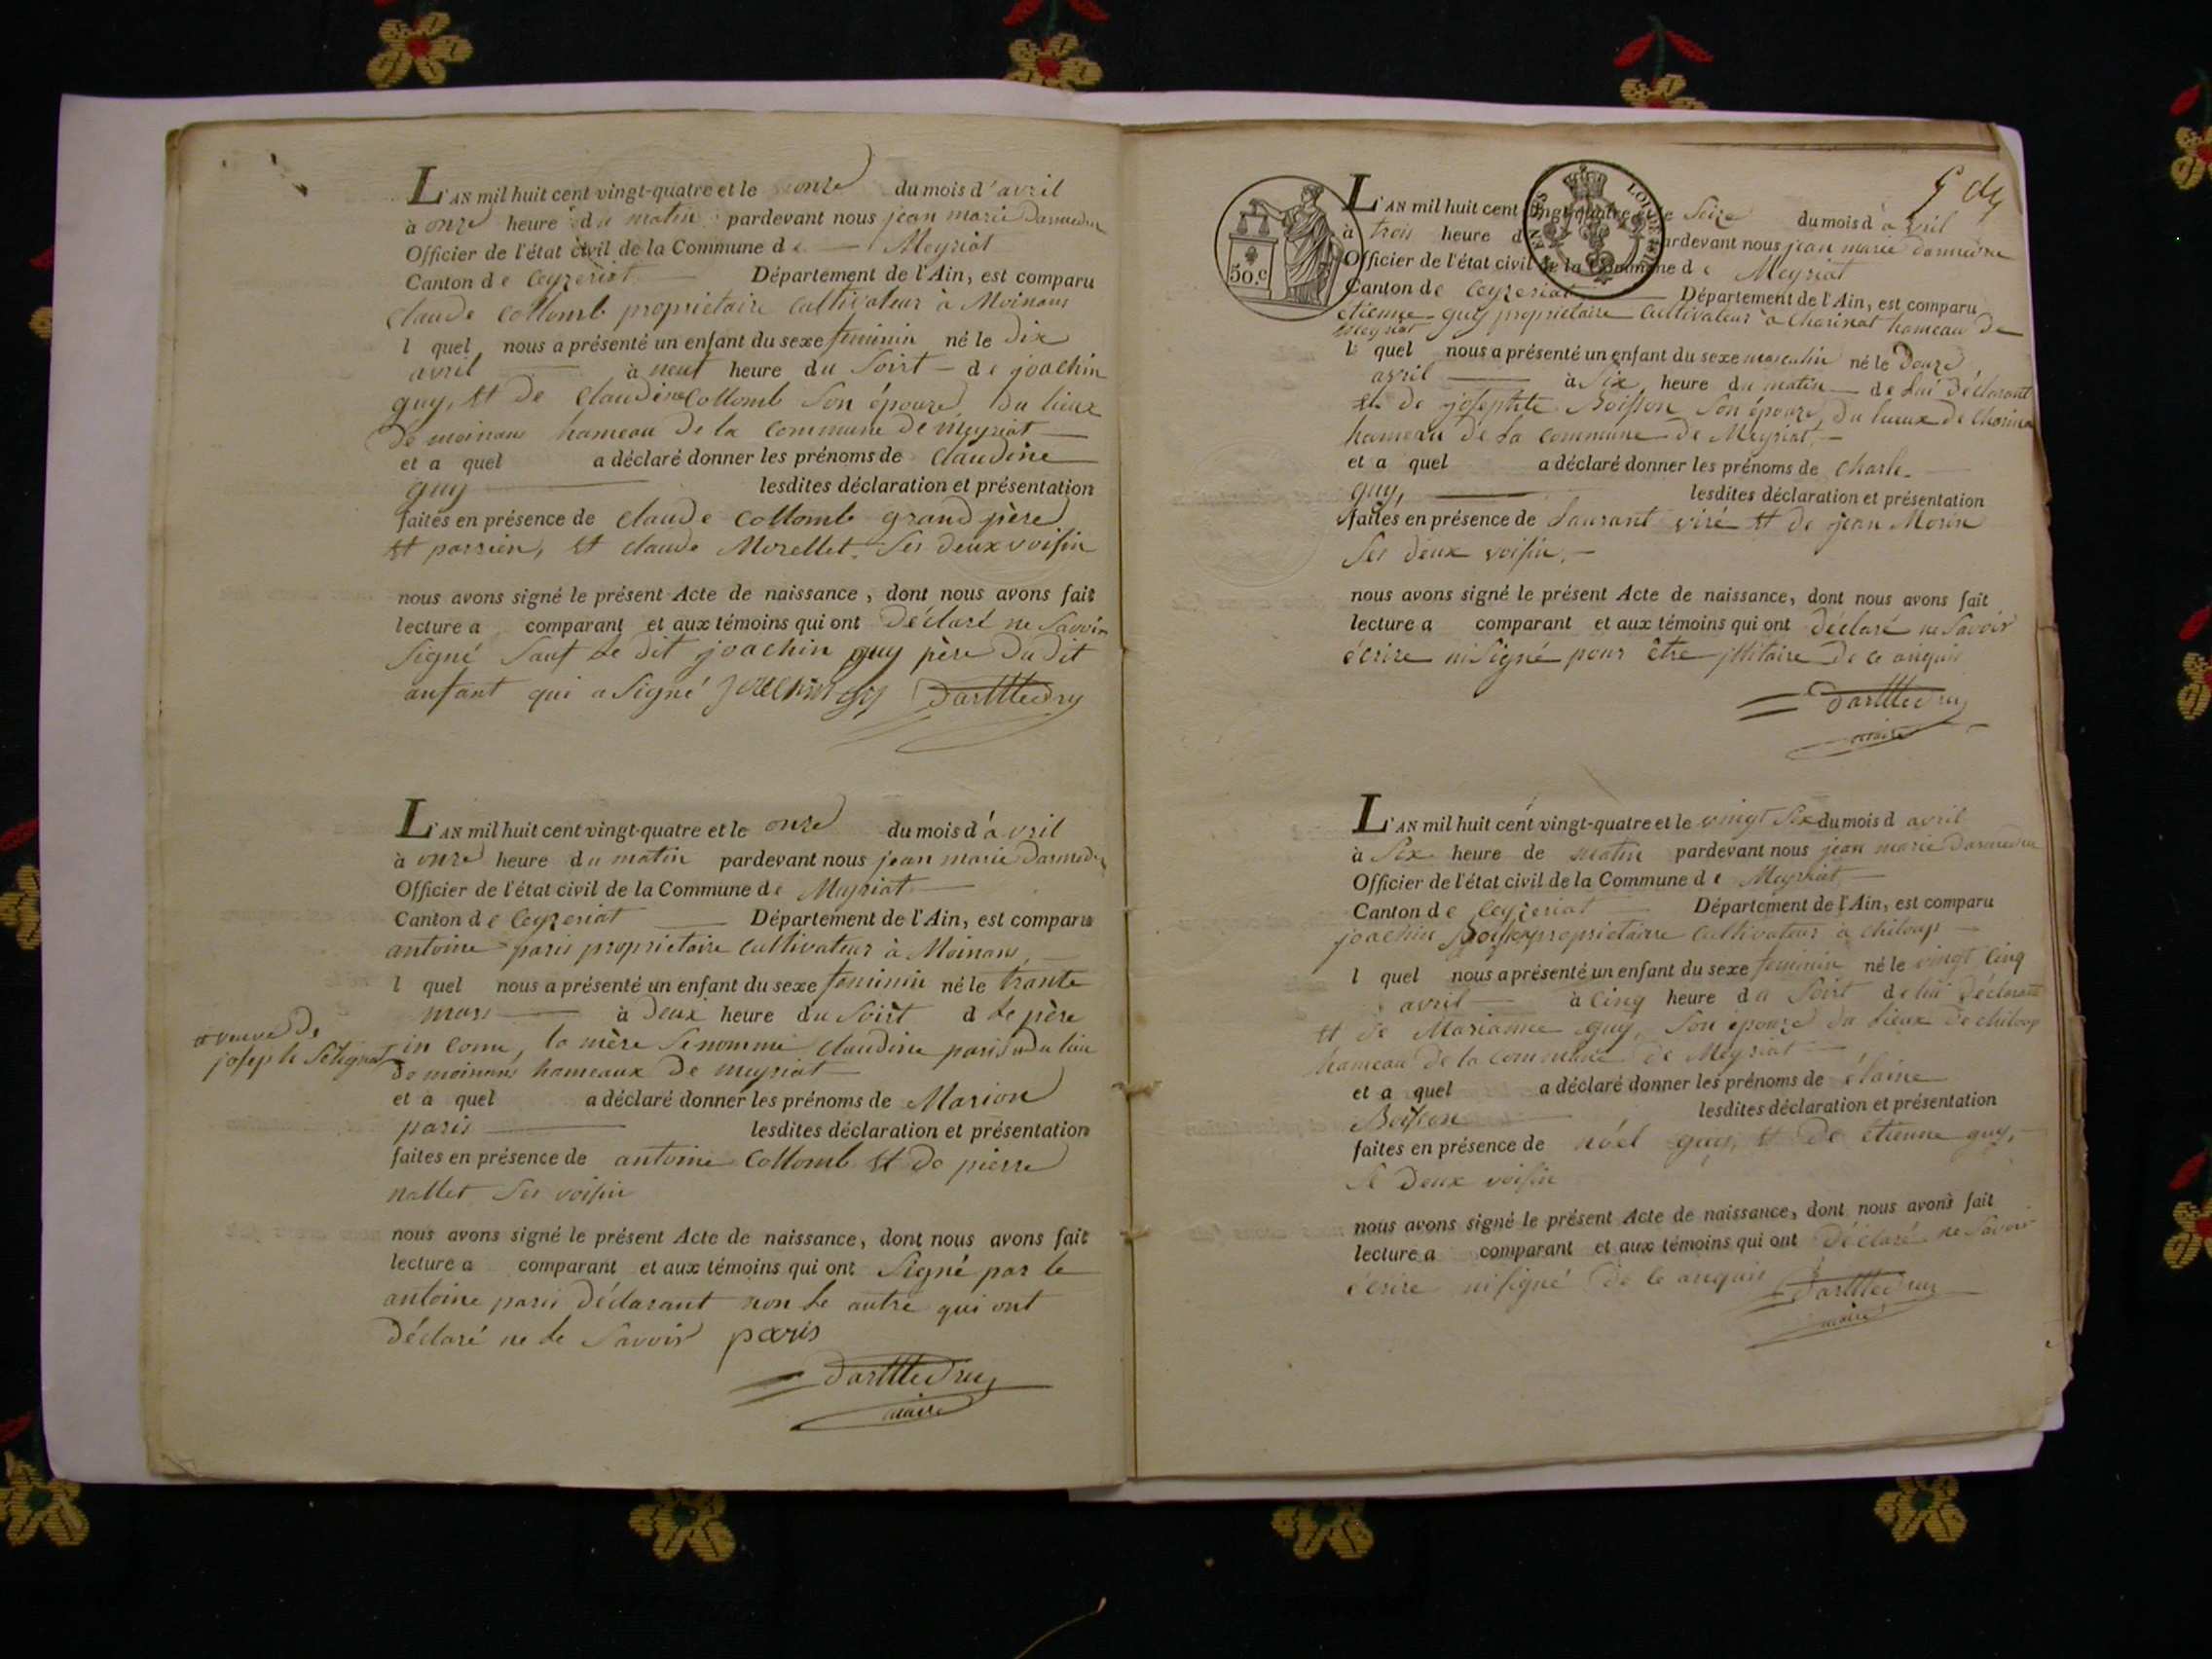 L'AN mil huit cent vingt-quatre et le onze du mois d'avril
à onze heure du matin pardevant nous jean marie Darmedru
Officier de l'état civil de la Commune de Meyriat
Canton de Ceyzeriat Département de l'Ain, est comparu
Claude Collomb proprietaire cultivateur à Moinans
l quel nous a présenté un enfant du sexe feminin né le dix
avril à neuf heure du Soirt de joachin
guy, et de Claudine Collomb Son épouze, du lieux
de moinans hameau de la Commune de meyriat
et a quel a déclaré donner les prénoms de claudine
guy lesdites déclaration et présentation
faites en présence de claude Collomb grand père
et parrien, et claude Morellet. Ses deux voisin
nous avons signé le présent Acte de naissance, dont nous avons fait
lecture a comparant et aux témoins qui ont déclaré ne Savoir
Signé Sauf le dit joachin guy père du dit
anfant qui a Signé joachin guy Darmedru
L'AN mil huit cent vingt-quatre et le onze du mois d'avril
à onze heure du matin pardevant nous jean marie Darmedru
Officier de l'état civil de la Commune de Meyriat
Canton de Ceyzeriat Département de l'Ain, est comparu
antoine paris proprietaire cultivateur à Moinans,
l quel nous a présenté un enfant du sexe feminin né le trante
mars à deux heure du Soirt d le père
a veuve de
joseph Setignat
in conu, la mère Se nommé claudine paris du lieu
de moinans hameaux de meyriat
et a quel a déclaré donner les prénoms de Marion
paris lesdites déclaration et présentation
faites en présence de antoine Collomb et de pierre
nallet Ses voisin
nous avons signé le présent Acte de naissance, dont nous avons fait
lecture a comparant et aux témoins qui ont Signé par le
antoine paris déclarant non le autre qui ont
déclaré ne le Savoir paris
Darmedru
maire
50.c
L'AN mil huit cent vingt-quatre et le Seize du mois d'avril
à trois heure d pardevant nous jean marie darmedru
Officier de l'état civil de la Commune de Meyriat
Canton de Ceyzeriat Département de l'Ain, est comparu
etienne guy proprietaire Cultivateur à Charinat hameau de
meyriat
le quel nous a présenté un enfant du sexe masculin né le Douze
avril à Six heure du matin de lui déclarant
et de josephte Boisson Son épouze, du lieux de Charinat
hameau de la Commune de Meyriat,
et a quel a déclaré donner les prénoms de Charle
guy, lesdites déclaration et présentation
faites en présence de Laurant viré et de jean Morin
Ses deux voisin,
nous avons signé le présent Acte de naissance, dont nous avons fait
lecture a comparant et aux témoins qui ont déclaré ne Savoir
écrire ni Signé pour être de ce anquis
Darmedru
maire
L'AN mil huit cent vingt-quatre et le vingt Six du mois d avril
à Six heure de matin pardevant nous jean marie Darmedru
Officier de l'état civil de la Commune de Meyriat
Canton de Ceyzeriat Département de l'Ain, est comparu
joachin Boisson proprietaire cultivateur à chiloup
l quel nous a présenté un enfant du sexe feminin né le vingt Cinq
avril à Cinq heure du Soirt de lui déclarant
et de Marianne guy, Son épouze du Lieux de chiloup
hameau de la Commune de Meyriat
et a quel a déclaré donner les prénoms de élaine
Boisson lesdites déclaration et présentation
faites en présence de noél guy, et de etienne guy,
Se deux voisin
nous avons signé le présent Acte de naissance, dont nous avons fait
lecture a comparant et aux témoins qui ont déclaré ne Savoir
écrire ni signé de ce anquis Darmedru
maire